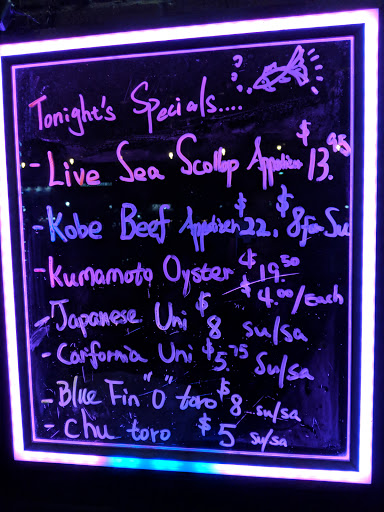 Tonight's Specials....
- Live Sea Scollop Appetizer $13.95
- Kobe Beef Appetizer $22. $8 for Su
- Kumamoto Oyster 4 $19.50
$4.00/Each
- Japanese Uni $8 su/sa
- Carfornia Uni $5.75 Su/sa
- Blue Fin "O" toro $8 su/sa
- Chu toro $5 su/sa